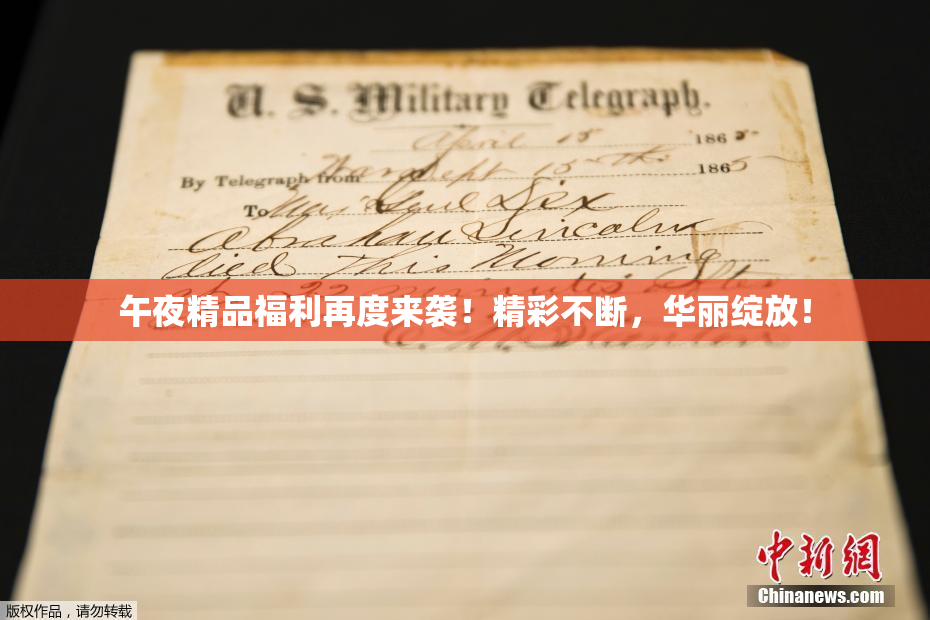 U. S. Military Telegraph.
April 15 1865
By Telegraph from War Dept 15th 1865
To Maj Genl Dix
Abraham Lincoln
died This Morning
at 22 minutes after
午夜精品福利再度来袭！精彩不断，华丽绽放！
中新网
Chinanews.com
版权作品，请勿转载